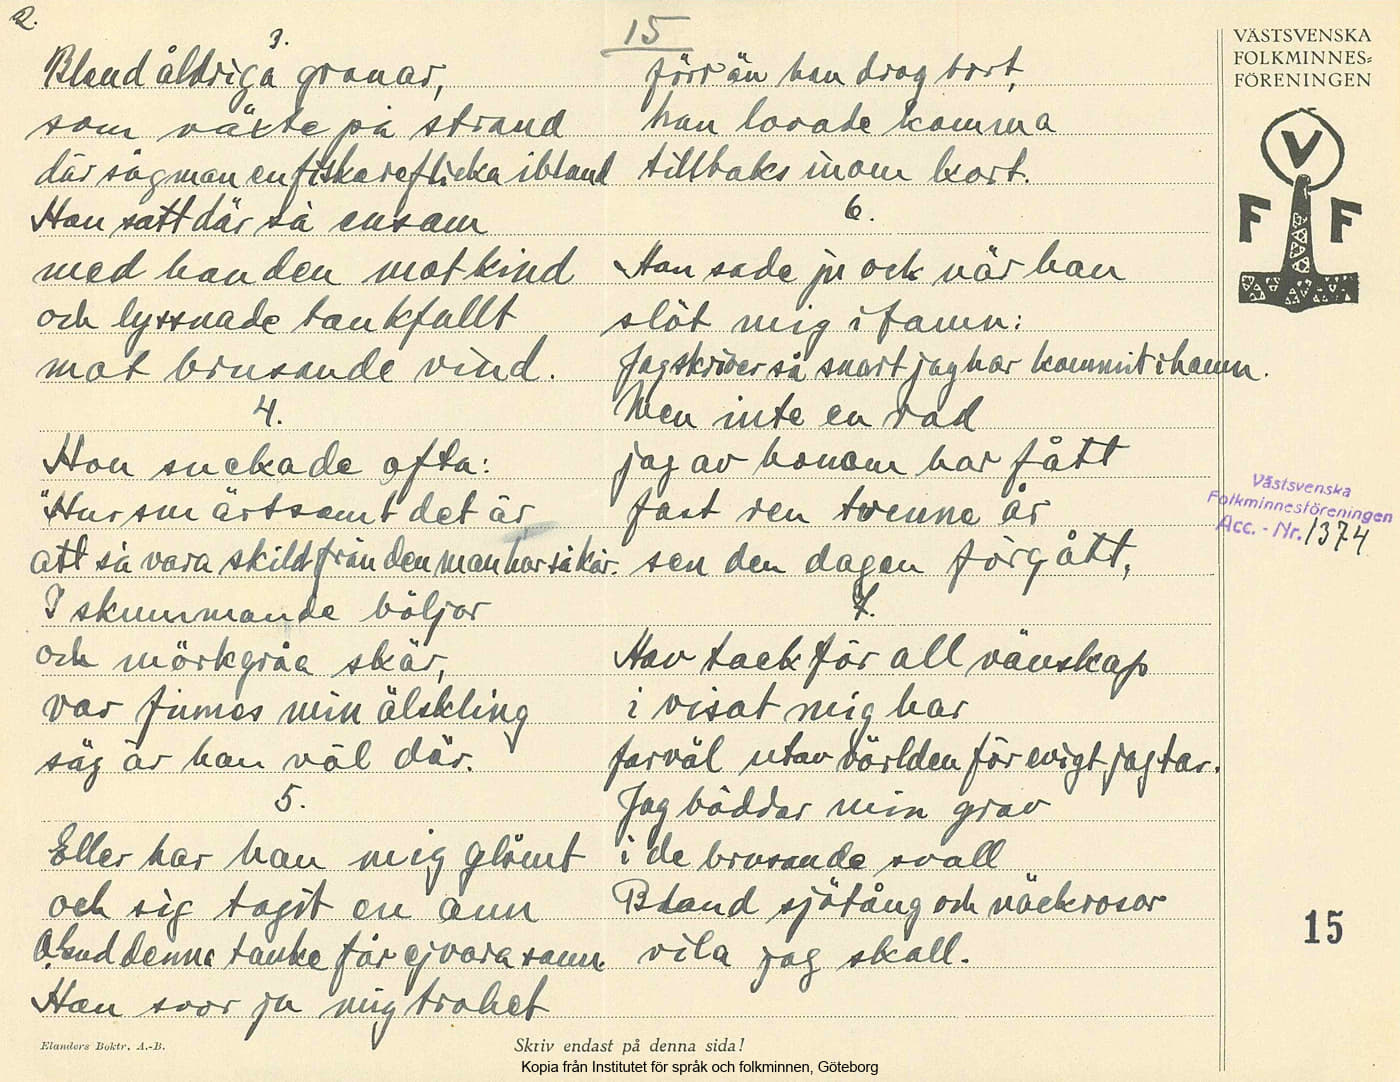 2.
15
3.
Bland åldriga granar,
som växte på strand
där såg man en fiskareflicka ibland
Hon satt där så ensam
med handen mot kind
och lyssnade tankfullt
mot brusande vind.
4.
Hon suckade ofta:
"Hur smärtsamt det är
att så vara skild från den man har så kär.
I skummande böljor
och mörkgråa skär,
var finnes min älskling
säg är han väl där.
5.
Eller har han mig glömt
och sig tagit en ann
O, Gud denna tanke får ej vara sann.
Han svor ju mig trohet
förr än han drog bort,
han lovade komma
tillbaks inom kort.
6.
Han sade ju och när han
slöt mig i famn:
Jag skriver så snart jag har kommit i hamn.
Men inte en rad
jag av honom har fått
fast ren tvenne år
sen den dagen förgått,
7.
Hav tack för all vänskap
i visat mig har
farväl utav världen för evigt jag tar.
Jag bäddar min grav
i de brusande svall
Bland sjötång och näckrosor
vila jag skall.
VÄSTSVENSKA
FOLKMINNES-
FÖRENINGEN
V
F F
Västsvenska
Folkminnesföreningen
Acc. - Nr. 1374
15
Elanders Boktr. A.-B.
Skriv endast på denna sida!
Kopia från Institutet för språk och folkminnen, Göteborg